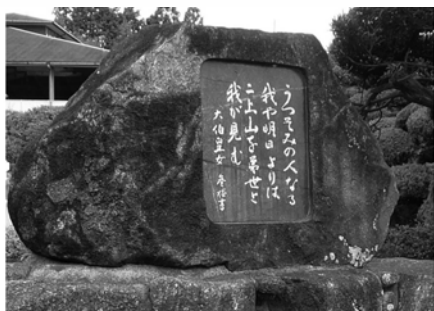 うつそみの人なる
我や明日よりは
二上山を弟世と
我が見む
大伯皇女 書